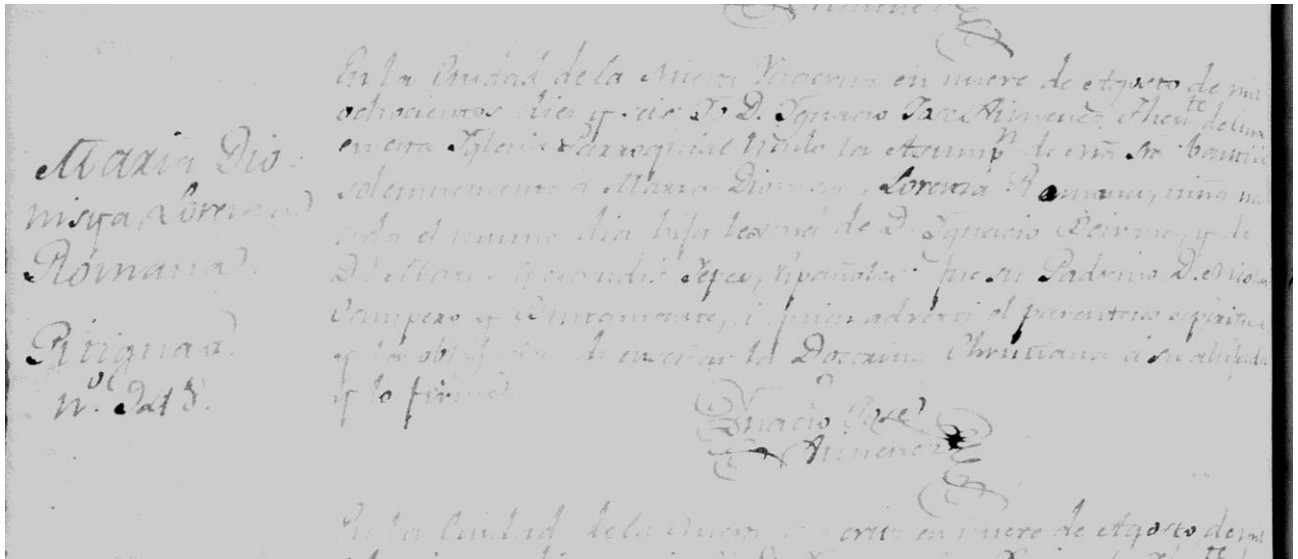 Ximenez
Maria Dio
nisya, Lorenza
Romana.
nº. 245.
En la Ciudad de la Nueva Veracruz en nueve de Agosto de mil
ochocientos diez y seis Yo D. Ygnacio Jose Ximenez Thente de Cura
en esta Yglesia Parroquial titulo la Asumpn de Ntra Sra bautize
solemnemente à Maria Dionisya, Lorenza Romana, niña na
cida el mismo dia hija lexma de D. Ygnacio y de
Da Maria Yepez, Españoles fue su Padrino D. Nicolas
Campero y Bustamante, à quien adverti el parentesco espiritual
y la obligacion de enseñar la Doctrina Christiana à su ahijada
y lo firmé
Ygnacio Jose
Ximenez
En la Ciudad de la Nueva Veracruz en nueve de Agosto de mil